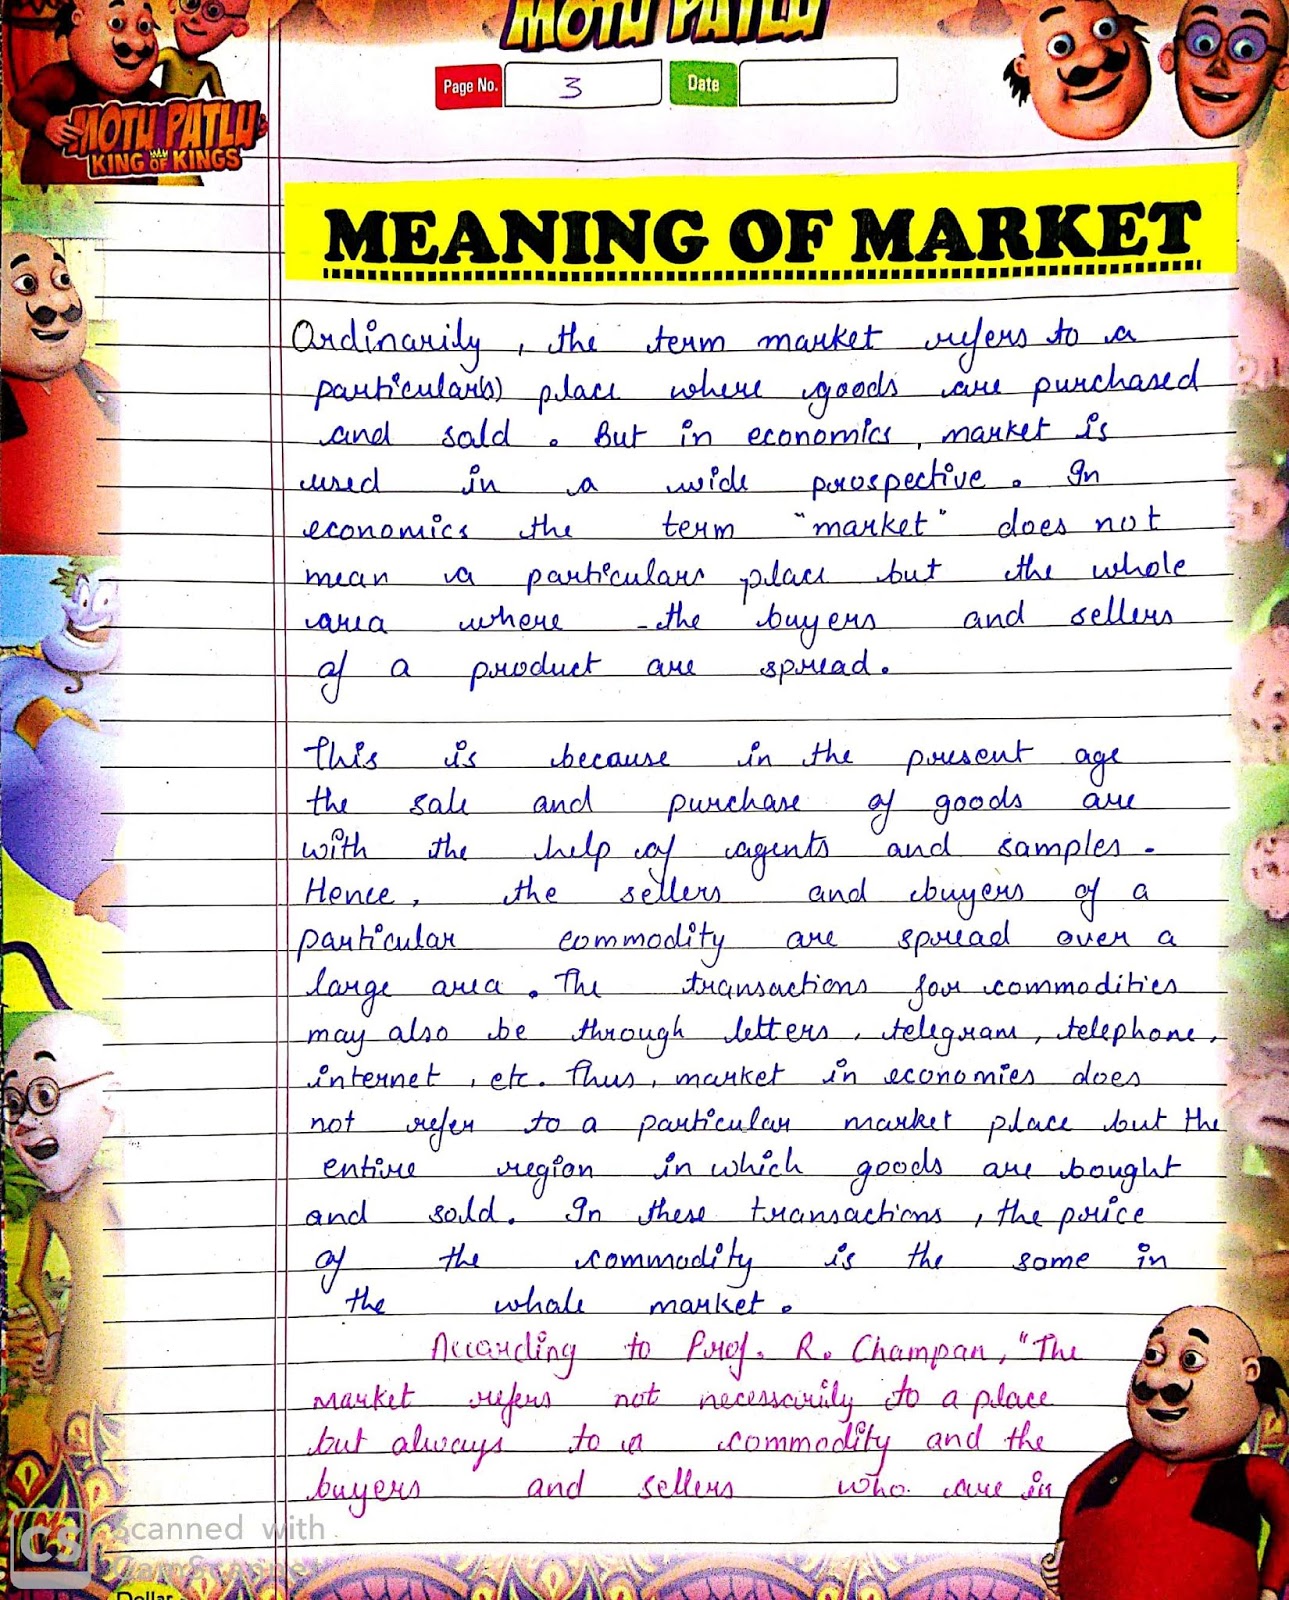 MOTU PATLU
MOTU PATLU
KING OF KINGS
Page No. 3 Date
MEANING OF MARKET
Ordinarily, the term market refers to a
particular(s) place where goods are purchased
and sold. But in economics, market is
used in a wide prospective. In
economics the term "market" does not
mean a particulars place but the whole
area where the buyers and sellers
of a product are spread.
This is because in the present age
the sale and purchase of goods are
with the help of agents and samples.
Hence, the sellers and buyers of a
particular commodity are spread over a
large area. The transactions for commodities
may also be through letters, telegram, telephone,
internet, etc. Thus, market in economies does
not refer to a particular market place but the
entire region in which goods are bought
and sold. In these transactions, the price
of the commodity is the same in
the whole market.
According to Prof. R. Champan, "The
market refers not necessarily to a place
but always to a commodity and the
buyers and sellers who are in
CS Scanned with
CamScanner
Dollar